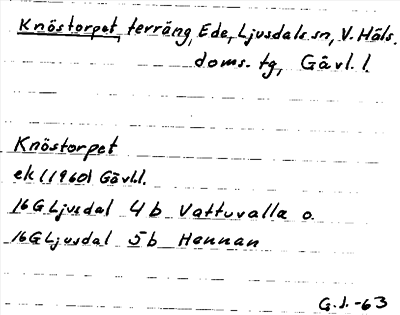 Knöstorpet, terräng, Ede, Ljusdals sn, V. Häls.
doms. tg, Gävl. l.
Knöstorpet
ek (1960) Gävl.l.
16G Ljusdal 4b Vattuvalla o.
16G Ljusdal 5b Hennan
G.J.-63